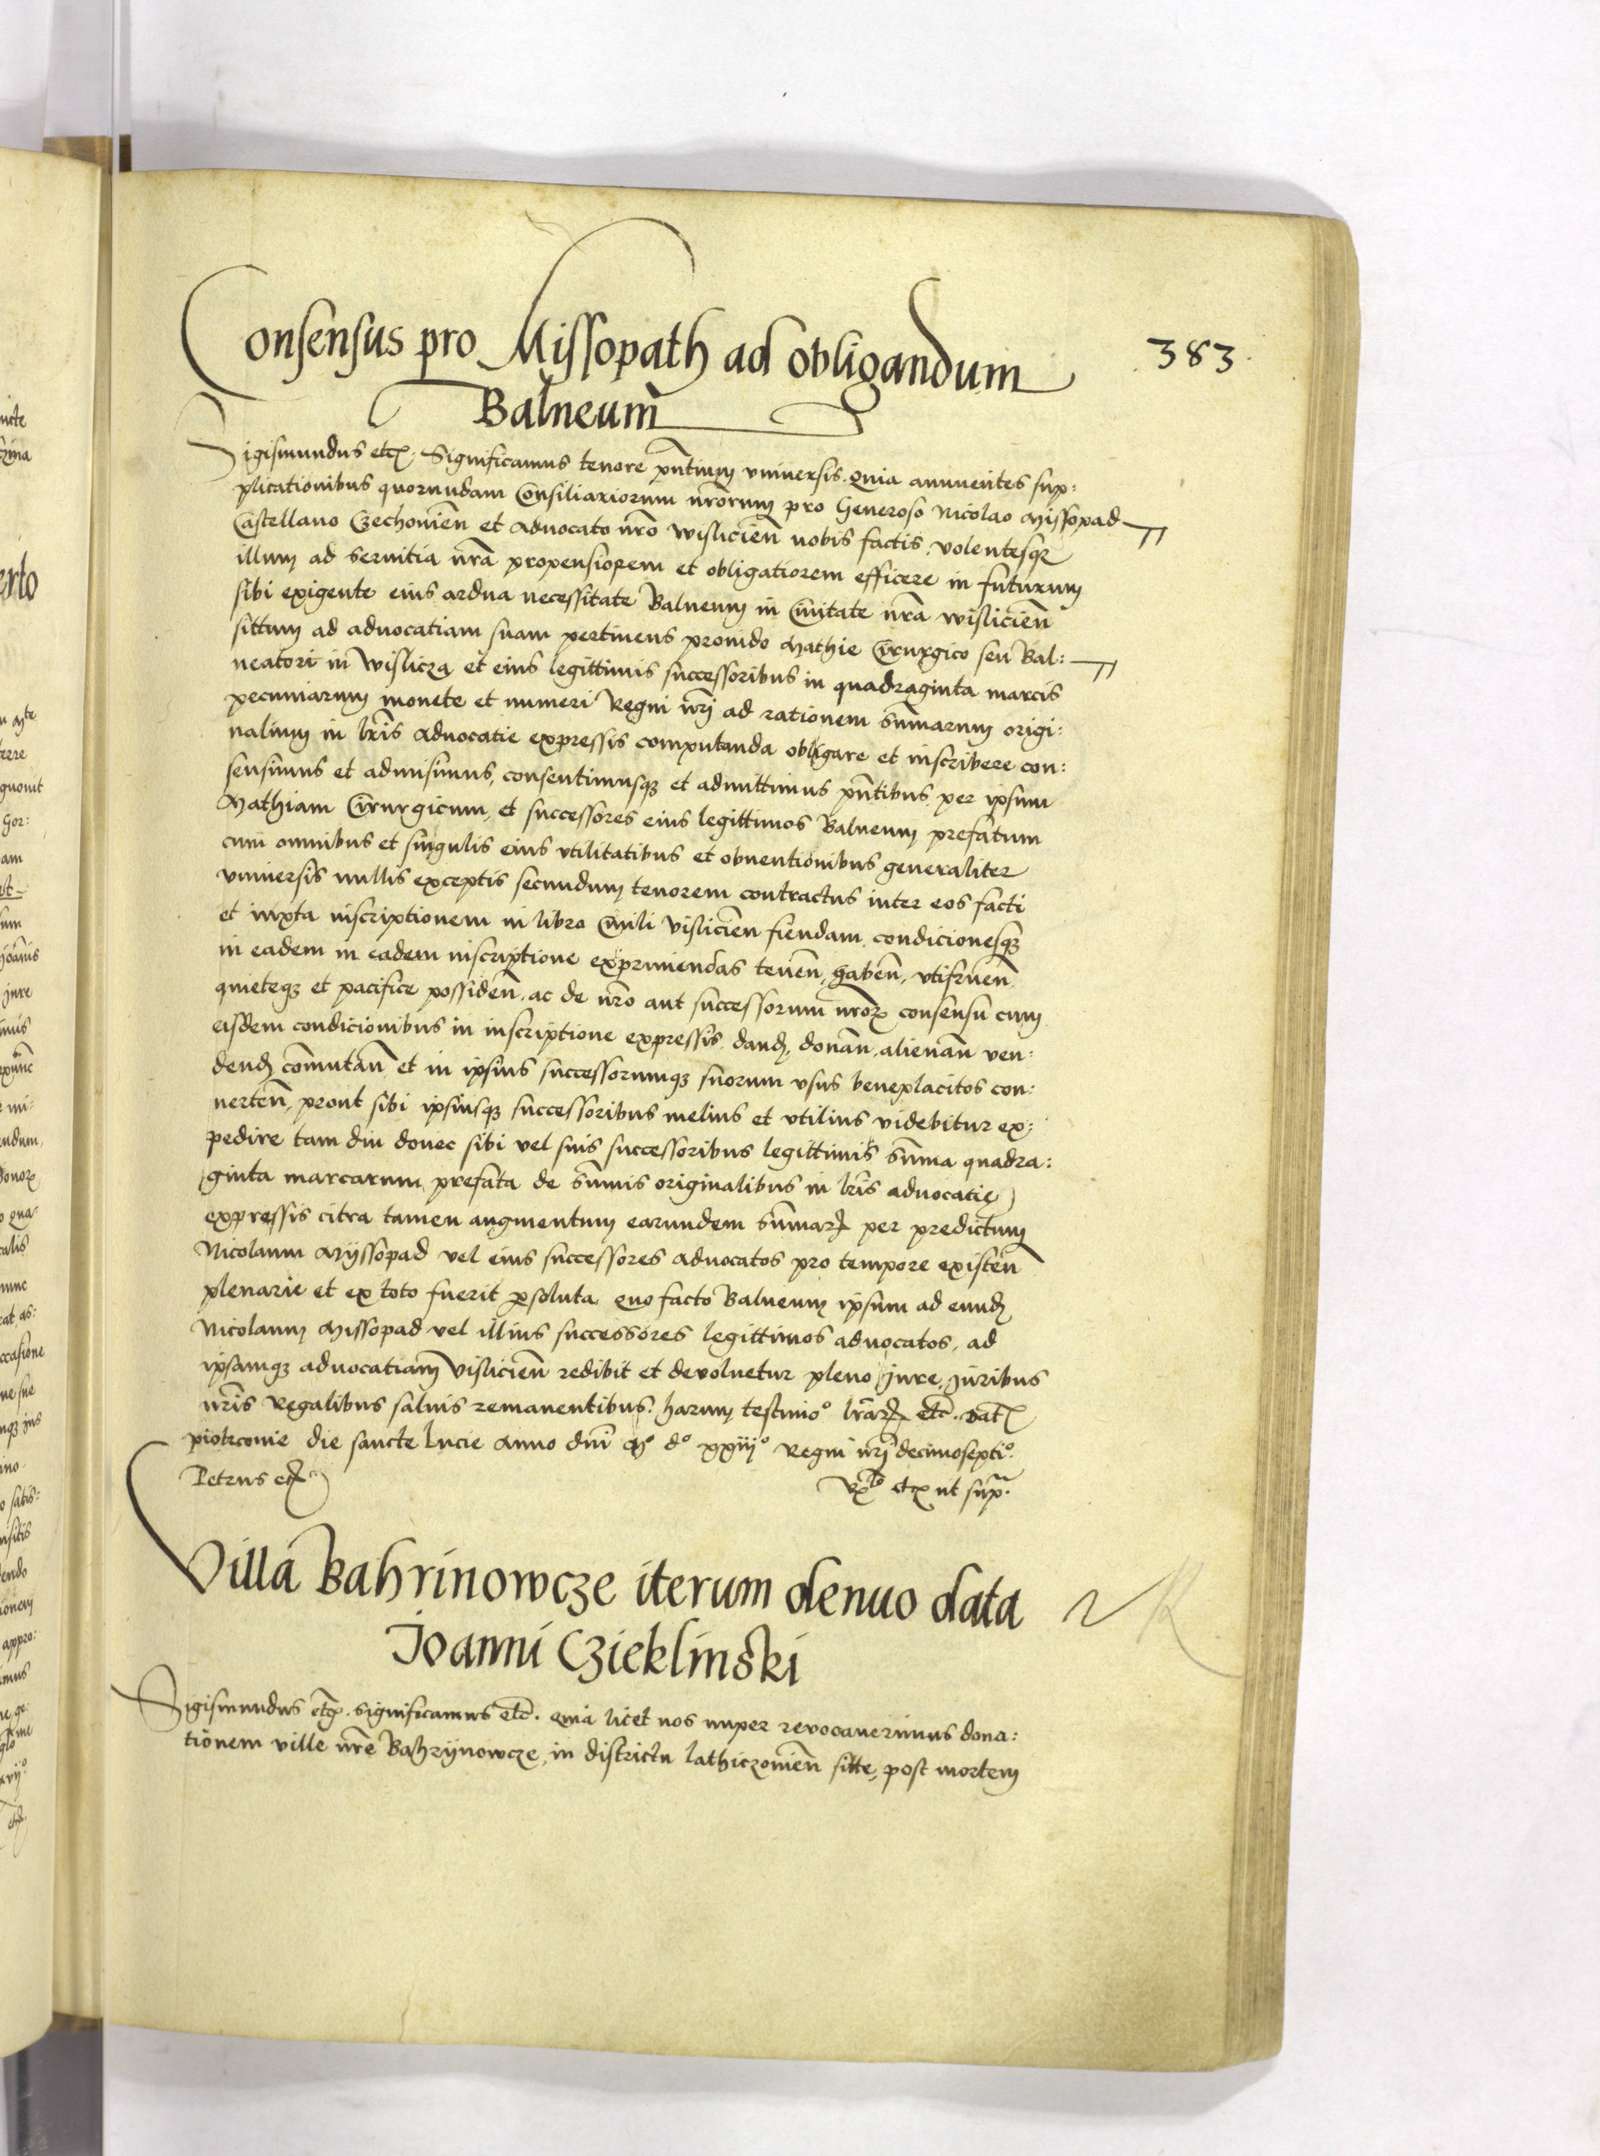 383
Consensus pro Missopath ad obligandum
Balneum
Sigismundus etc. Significamus tenore pñtium vniuersis. quia annuentes sup:
plicationibus quorundam Consiliariorum nrorum pro Generoso Nicolao Missopad
Castellano Czechovien̄ et advocato nr̄o Wislicien̄ nobis factis, volentesq̨
illum ad servitia nr̄a propensiorem et obligatiorem efficere in futurum
sibi exigente eius ardua necessitate Balneum in Civitate nr̄a wislicien̄
situm ad aduocatiam suam pertinens provido Mathie Cirurgico seu Bal:
neatori in Wislicza et eius legittimis successoribus in quadraginta marcis
pecuniarum monete et numeri Regni nr̄j ad rationem sum̄arum origi:
nalium in lr̄is aduocatie expressis computanda obligare et inscribere con:
sensimus et admisimus, consentimusq̨ et admittimus pn̄tibus per ipsum
Mathiam Cirurgicum et successores eius legittimos Balneum prefatum
cum omnibus et singulis eius vtilitatibus et obuentionibus generaliter
vniuersis nullis exceptis secundum tenorem contractus inter eos facti
et iuxta inscriptionem in libro Civili Vislicien̄ fiendam condicionesq̨
in eadem in eadem inscriptione exprimendas tenen̄, haben̄, vtifruen̄
quieteq̨ et pacifice possiden̄, ac de nr̄o aut successorum nr̄oꝝ consensu cum
eisdem condicionibus in inscriptione expressis dand, donan̄, alienan̄ ven:
dend com̄utan̄ et in ipsius successorumq̨ suorum vsus beneplacitos con:
uerten̄, prout sibi ipsiusq̨ successoribus melius et vtilius videbitur ex:
pedire tam diu donec sibi vel suis successoribus legittimis sum̄a quadra:
ginta marcarum prefata de sum̄is originalibus in lr̄is aduocatie
expressis citra tamen augmentum earundem sum̄arꝝ per predictum
Nicolaum Myssopad vel eius successores advocatos pro tempore existen̄
plenarie et ex toto fuerit ꝑsoluta. quo facto Balneum ipsum ad eund
Nicolaum Missopad vel illius successores legittimos advocatos, ad
ipsamq̨ aduocatiam Vislicien̄ redibit et devoluetur pleno jure, juribus
nr̄is Regalibus saluis remanentibus. harum testimo° lr̄arꝝ etc̄. Dat̄
piotrcovie die sancte lucie Anno dn̄i M° d° xxiij° Regni nr̄j decimosepti°.
Petrus etc̄
Rto etc ut supra.
Villa Bahrinowcze iterum denuo data
Joanni Czieklinski
Sigismundus etc̄. significamus etc̄. quia licet nos nuper revocauerimus dona:
tionem ville nr̄e Bahrynowcze in districtu lathiczovien̄ sitte, post mortem